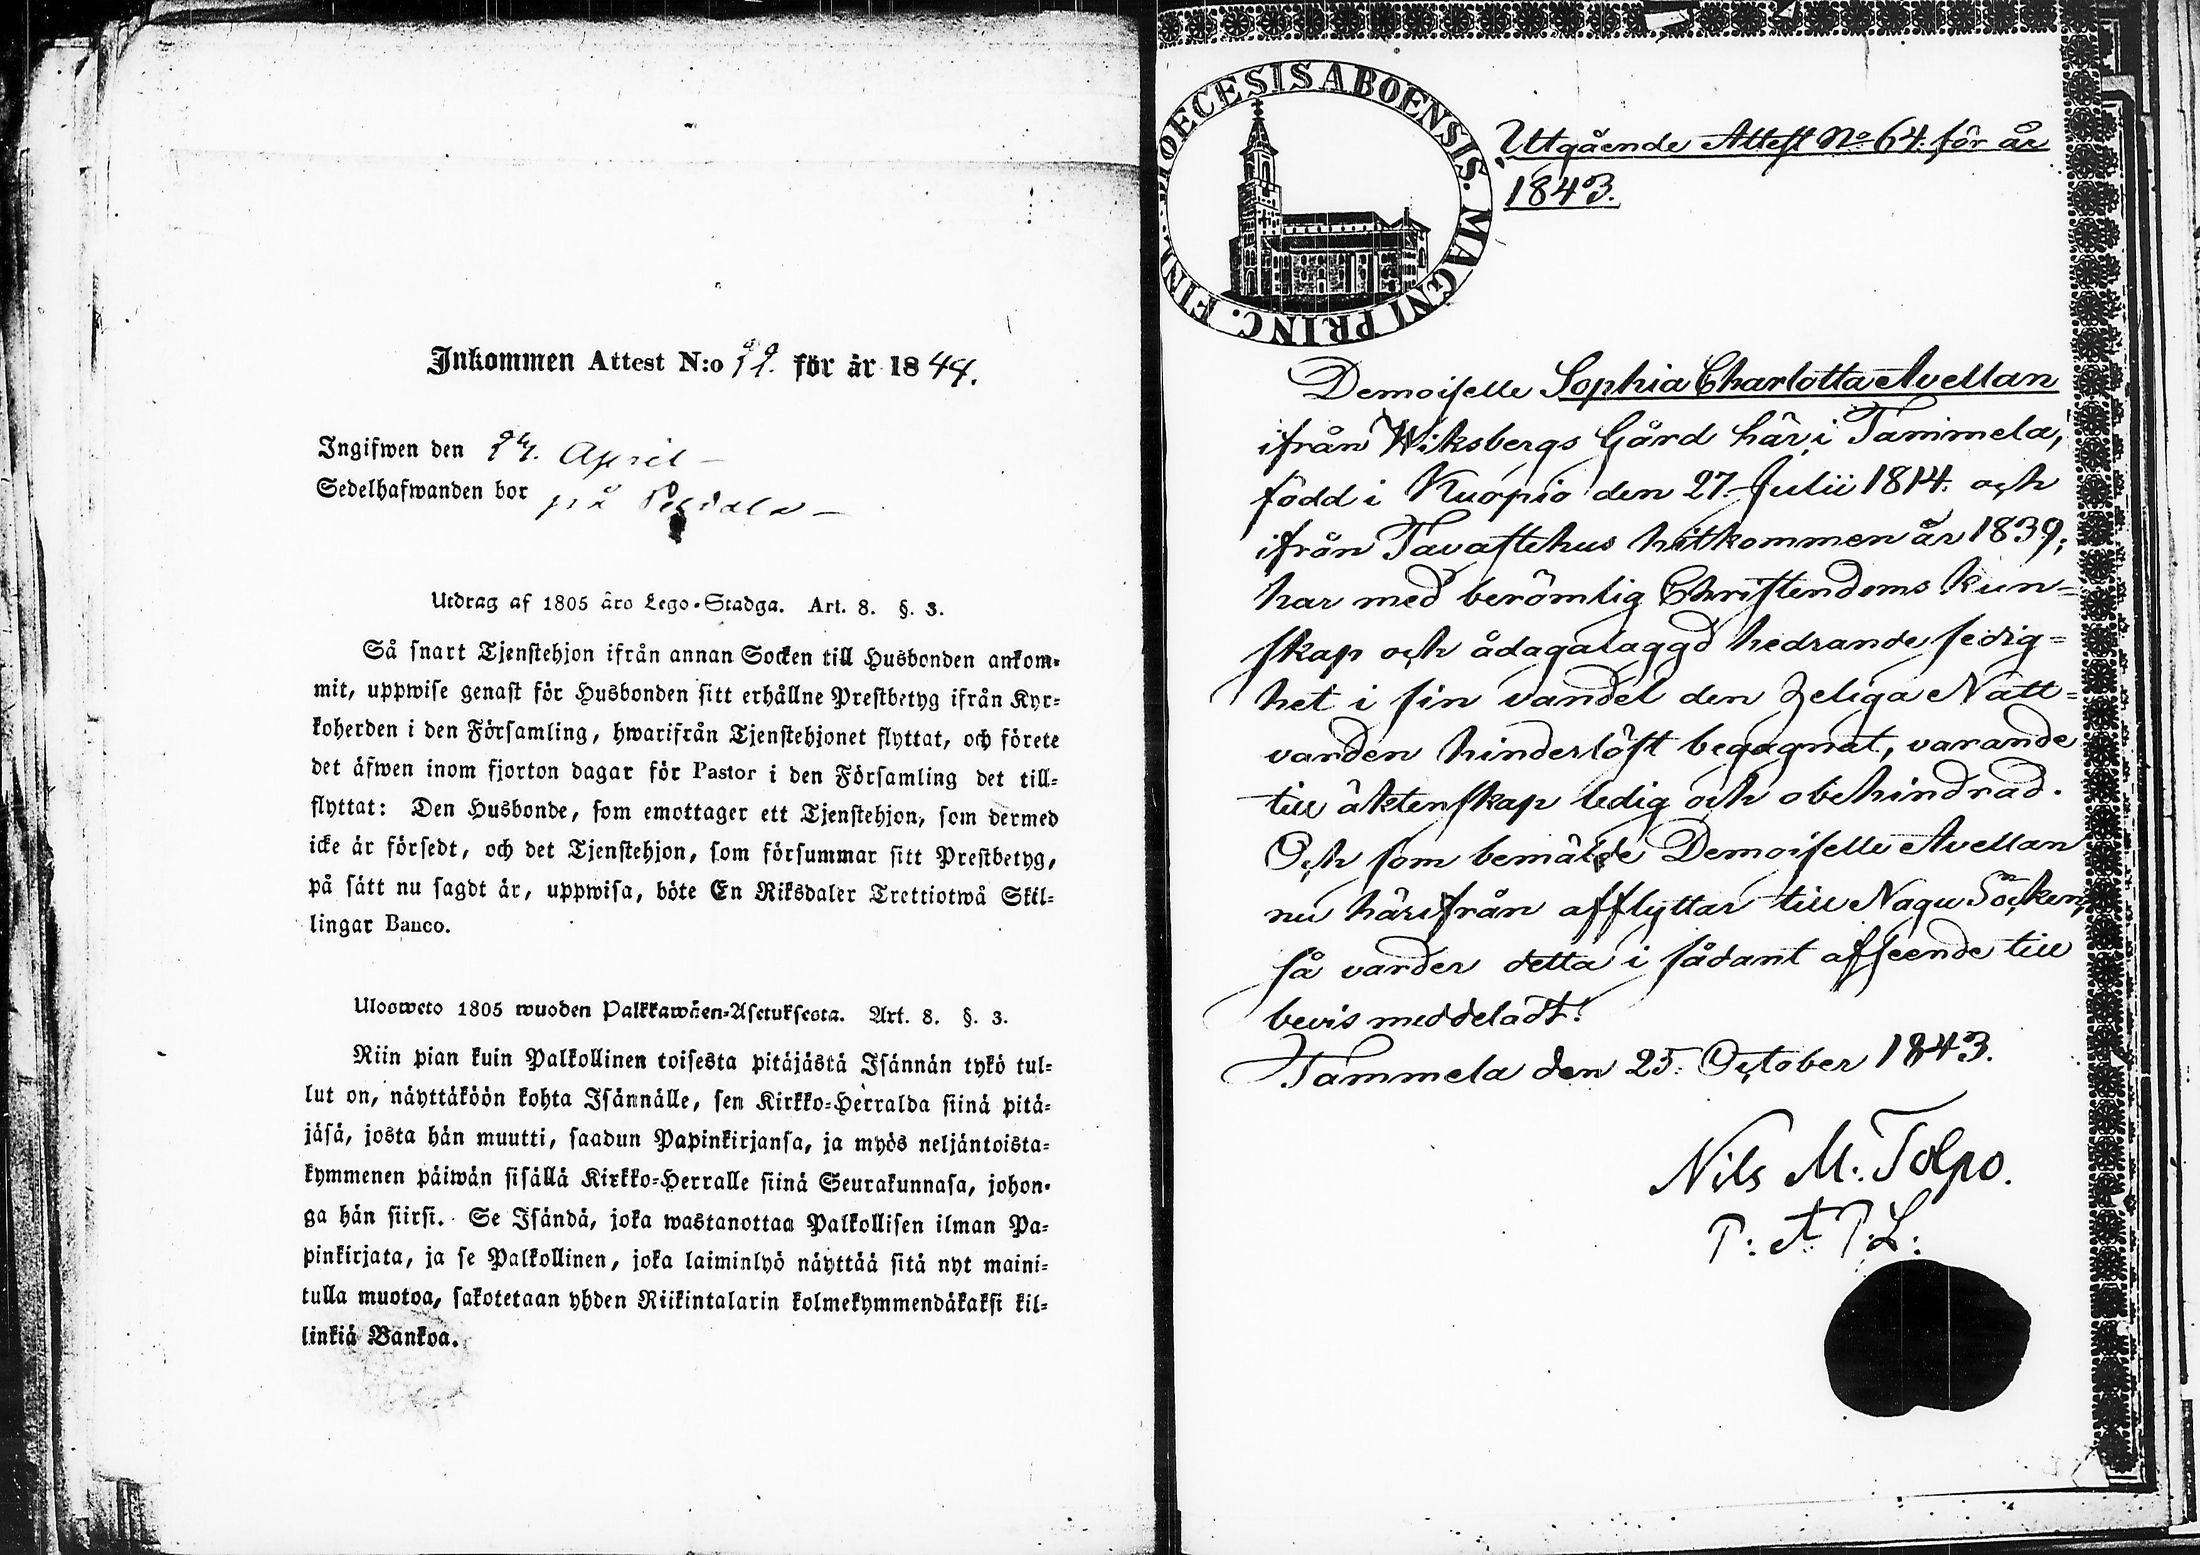 Inkommen Attest N:o för år 1844.
Ingifwen den 24. April –
Sedelhafwanden bor på –
Utdrag af 1805 års Lego-Stadga. Art. 8. §. 3.
Så snart Tjenstehjon ifrån annan Socken till Husbonden ankom-
mit, uppwise genast för Husbonden sitt erhållne Prestbetyg ifrån Kyr-
koherden i den Församling, hwarifrån Tjenstehjonet flyttat, och förete
det äfwen inom fjorton dagar för Pastor i den Församling det till-
flyttat: Den Husbonde, som emottager ett Tjenstehjon, som dermed
icke är försedt, och det Tjenstehjon, som försummar sitt Prestbetyg,
på sätt nu sagdt är, uppwisa, böte En Riksdaler Trettiotwå Skil-
lingar Banco.
Ulosweto 1805 wuoden Palkkawäen-Asetuksesta. Art. 8. §. 3.
Niin pian kuin Palkollinen toisesta pitäjästä Isännän tykö tul-
lut on, näyttäköön kohta Isännälle, sen Kirkko-Herralda siinä pitä-
jäsä, josta hän muutti, saadun Papinkirjansa, ja myös neljäntoista-
kymmenen päiwän sisällä Kirkko-Herralle siinä Seurakunnasa, johon-
ga hän siirsi. Se Isändä, joka wastanottaa Palkollisen ilman Pa-
pinkirjata, ja se Palkollinen, joka laiminlyö näyttää sitä nyt maini-
tulla muotoa, sakotetaan yhden Riikintalarin kolmekymmendäkaksi kil-
linkiä Bankoa.
DIOECESIS ABOENSIS. MAGNI PRINC. FINL.
Utgående Attest No 64. för år
1843.
Demoiselle Sophia Charlotta Avellan
ifrån Wiksbergs Gård här i Tammela,
född i Kuopio den 27. Julii 1814. och
ifrån Tavastehus hitkommen år 1839;
har med berömlig Christendoms kun-
skap och ådagalaggd hedrande sedig-
het i sin vandel den heliga Natt-
varden hinderlöst begagnat, varande
till äktenskap ledig och obehindrad.
Och som bemälde Demoiselle Avellan
nu härifrån afflyttar till Nagu Socken,
så varder detta i sådant afseende till
bevis meddeladt.
Tammela den 25. October 1843.
Nils M. Tolpo.
P. L: